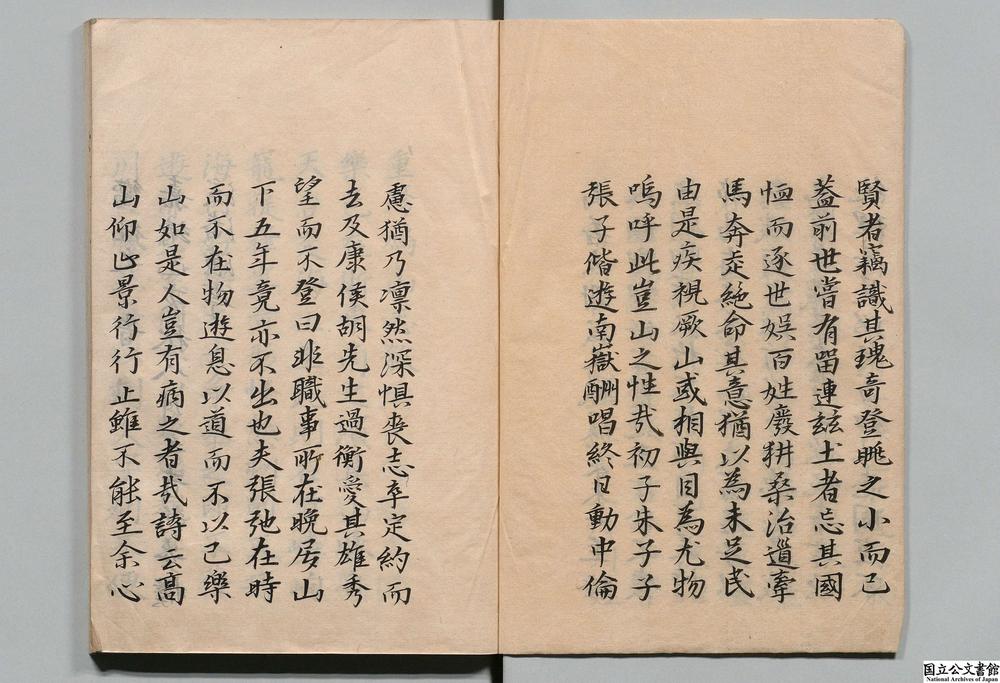 賢者竊識其瑰奇登眺之小而已
蓋前世嘗有留連兹土者忘其國
恤而逐世娯百姓廢耕桑治道牽
馬奔走絶命其意猶以為未足民
由是疾視厥山或相與目為尤物
嗚呼此豈山之性㦲初子朱子子
張子偕遊南嶽酬唱終日動中倫
慮猶乃凛然深惧喪志卒定約而
去及康侯胡先生過衡愛其雄秀
望而不登曰非職事所在晩居山
下五年竟亦不出也夫張弛在時
而不在物遊息以道而不以己樂
山如是人豈有病之者㦲詩云高
山仰止景行行止雖不能至余心
国立公文書館
National Archives of Japan